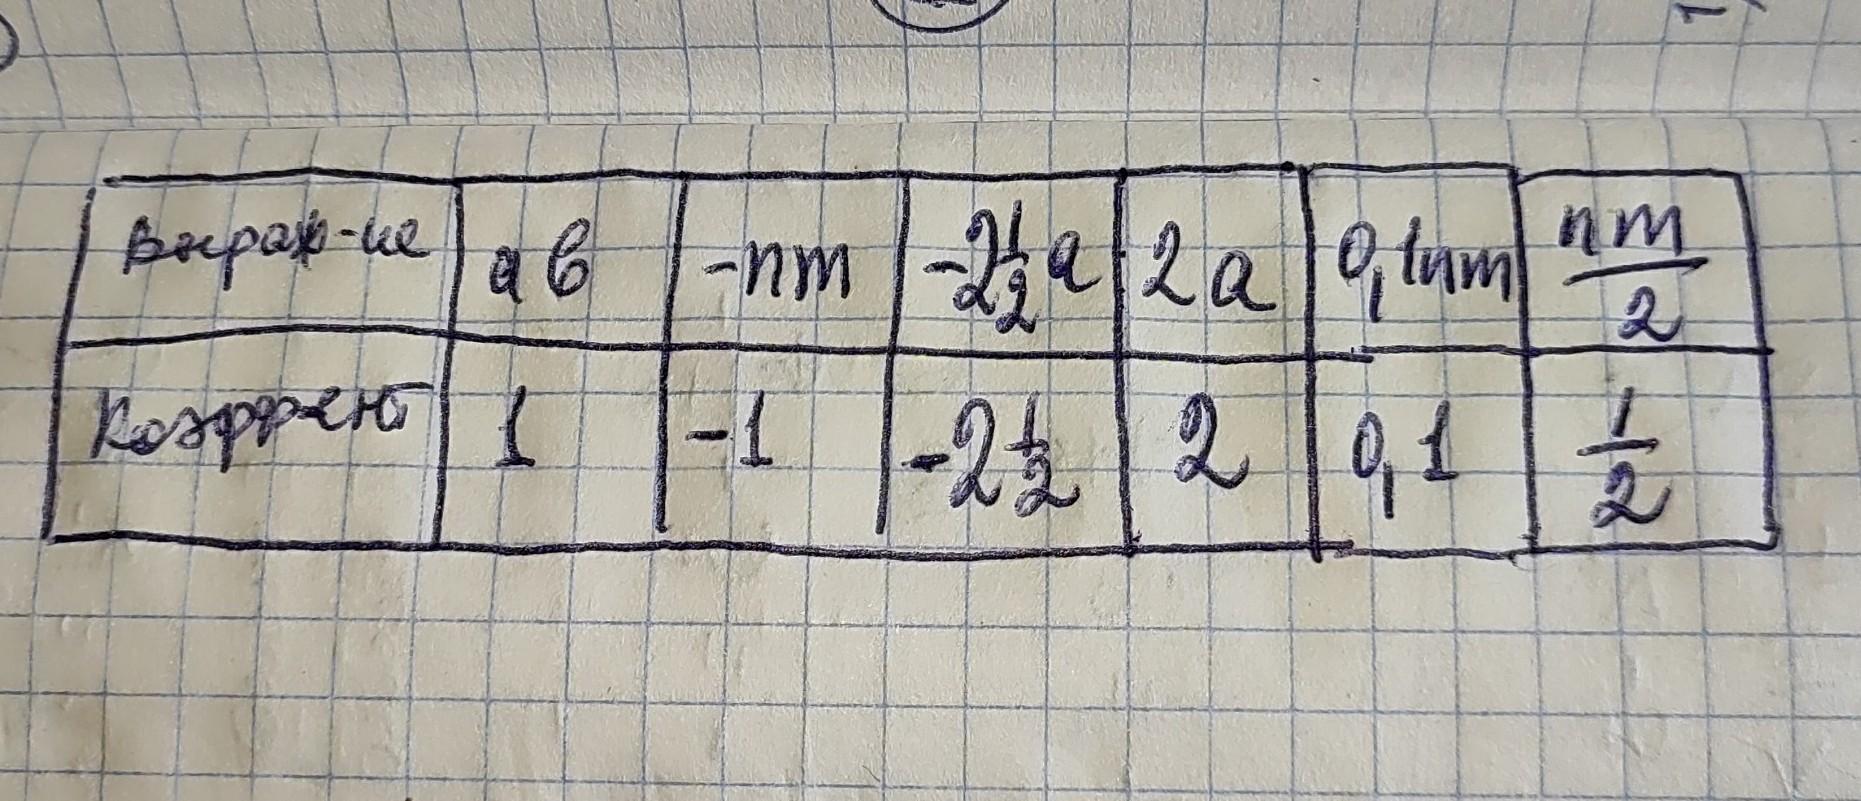 Выраж-ие ав -nm -2 1/2 а 2а 0,1nm nm/2
Коэффент 1 -1 -2 1/2 2 0,1 1/2